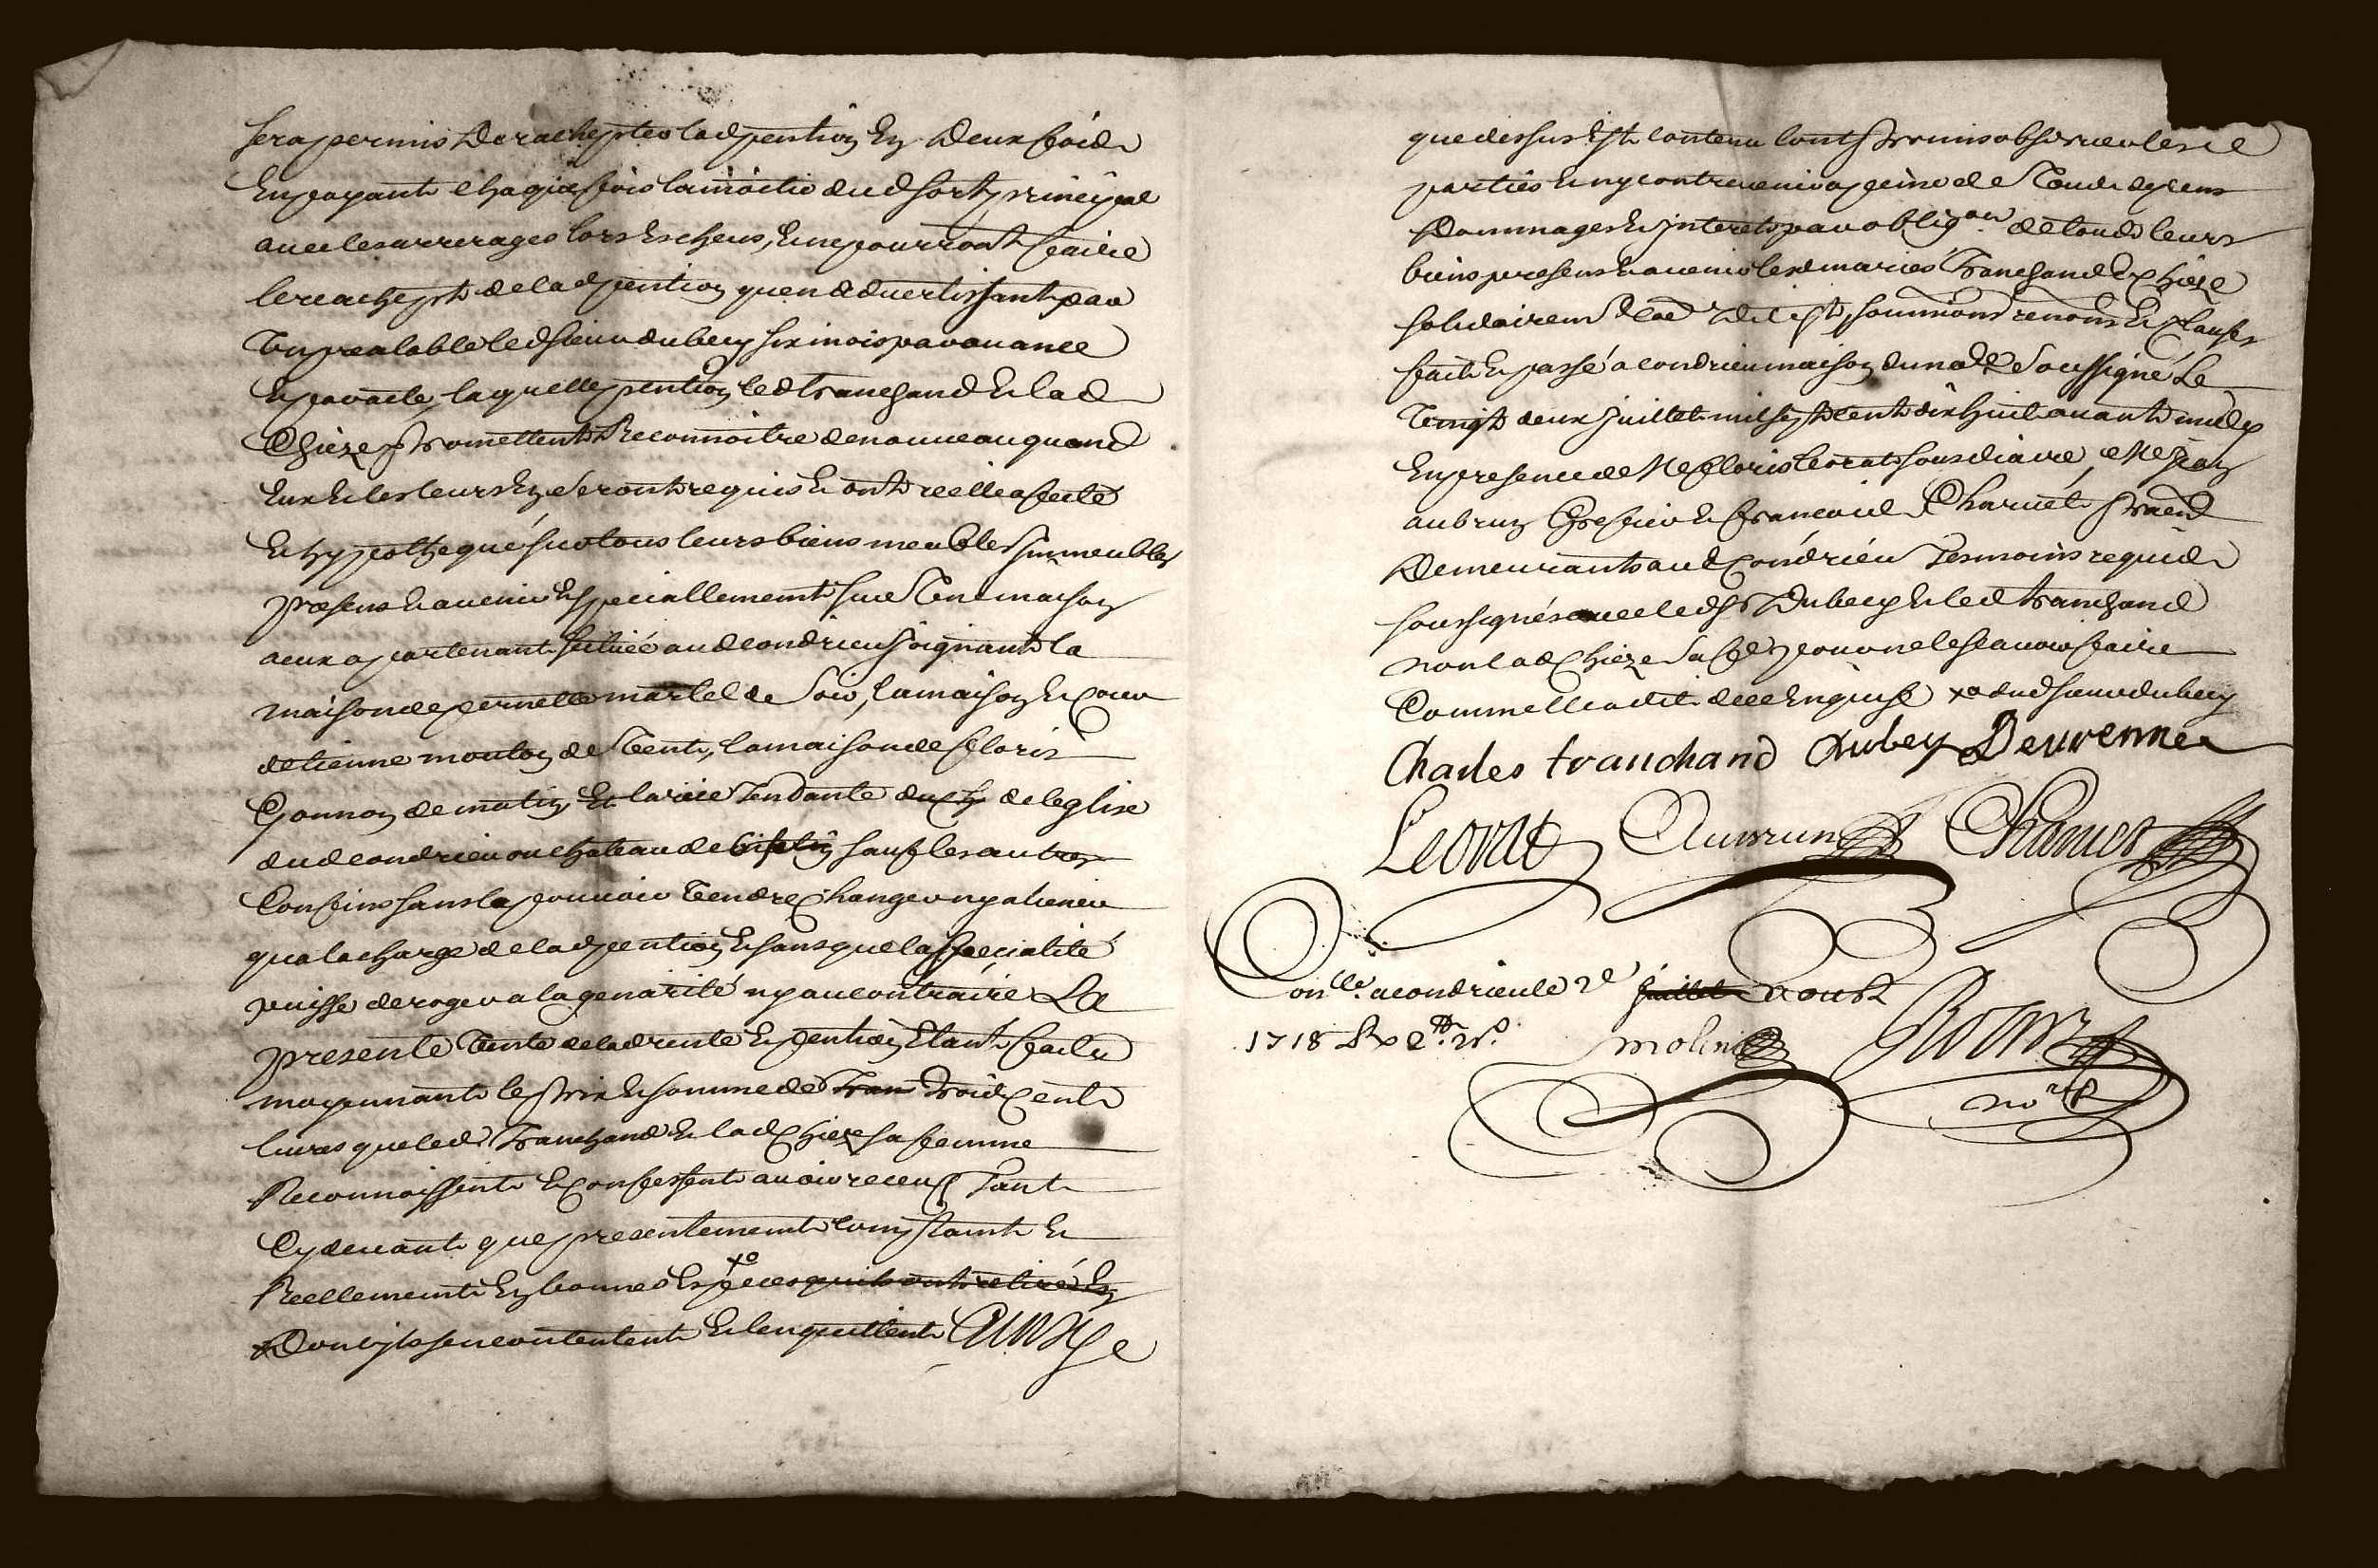 sera permis de rachepter lad pention en deux fois
en payant chaque fois la moitie dud sort principal
avec les arrerages lors escheus, et ne pourront faire
le rachept de lad pention quen advertissant par
un prealable led sieur dubecy six mois par avance
et par acte, laquelle pention led tranchand et lad
Chieze promettent Reconnoitre de nouveau quand
eux et les leurs en seront requis et ont icelle afecté
et hypothequé sur tous leurs biens meubles immeubles
presens et avenir et speciallement sur une maison
a eux apartenant scituée aud condrieu joignant la
maison de pernette martel de soir, la maison et cour
detienne mouton de vent, la maison de floris
Gonnon de matin et la rüe tendante de leglise
dud condrieu au chateau de sauf les autres
Confins sans la pouvoir vendre changer ny aliener
qua la charge de lad pention et sans que la specialité
puisse deroger a la generalité ny au contraire La
presente vente de lad rente et pention etant faite
moyennant le prix et somme de Tran trois cent
livres que led Tranchand et lad Chieze sa femme
Reconnoissent et confessent avoir receus tant
Cy devant que presentement comptant et
Reellement en bonnes especes xo quils ont retiré et
Dont ils se contentent et len quittent
que dessus est contenu ont promis observer lesd
parties et ny contrevenir a peine de tous depens
Dommages et interets par obligaon de tous leurs
biens presens et avenir lesd maries Tranchand et Chieze
solidairem soumions renons et clauses
fait et passé a condrieu maison du no.re soussigné Le
vingt deux juillet mil sept cent dix huit avant midy
en presence de Me floris leorat sousdiacre, Me jean
aubrun Grefier et francois Charvet prae
Demeurants aud Condrieu tesmoins requis
soussignés avec led sr Dubecy et led tranchand
non lad Chieze sa fe pour ne le scavoir faire
Comme elle a dit de ce enquise xo dud sieur dubecy
Charles tranchand Dubecy Devrenne
Leorat Aubrun Charvet
Con.lle a condrieu le 2e juillet aoust
1718 Rx 2.tt
molin
no.re